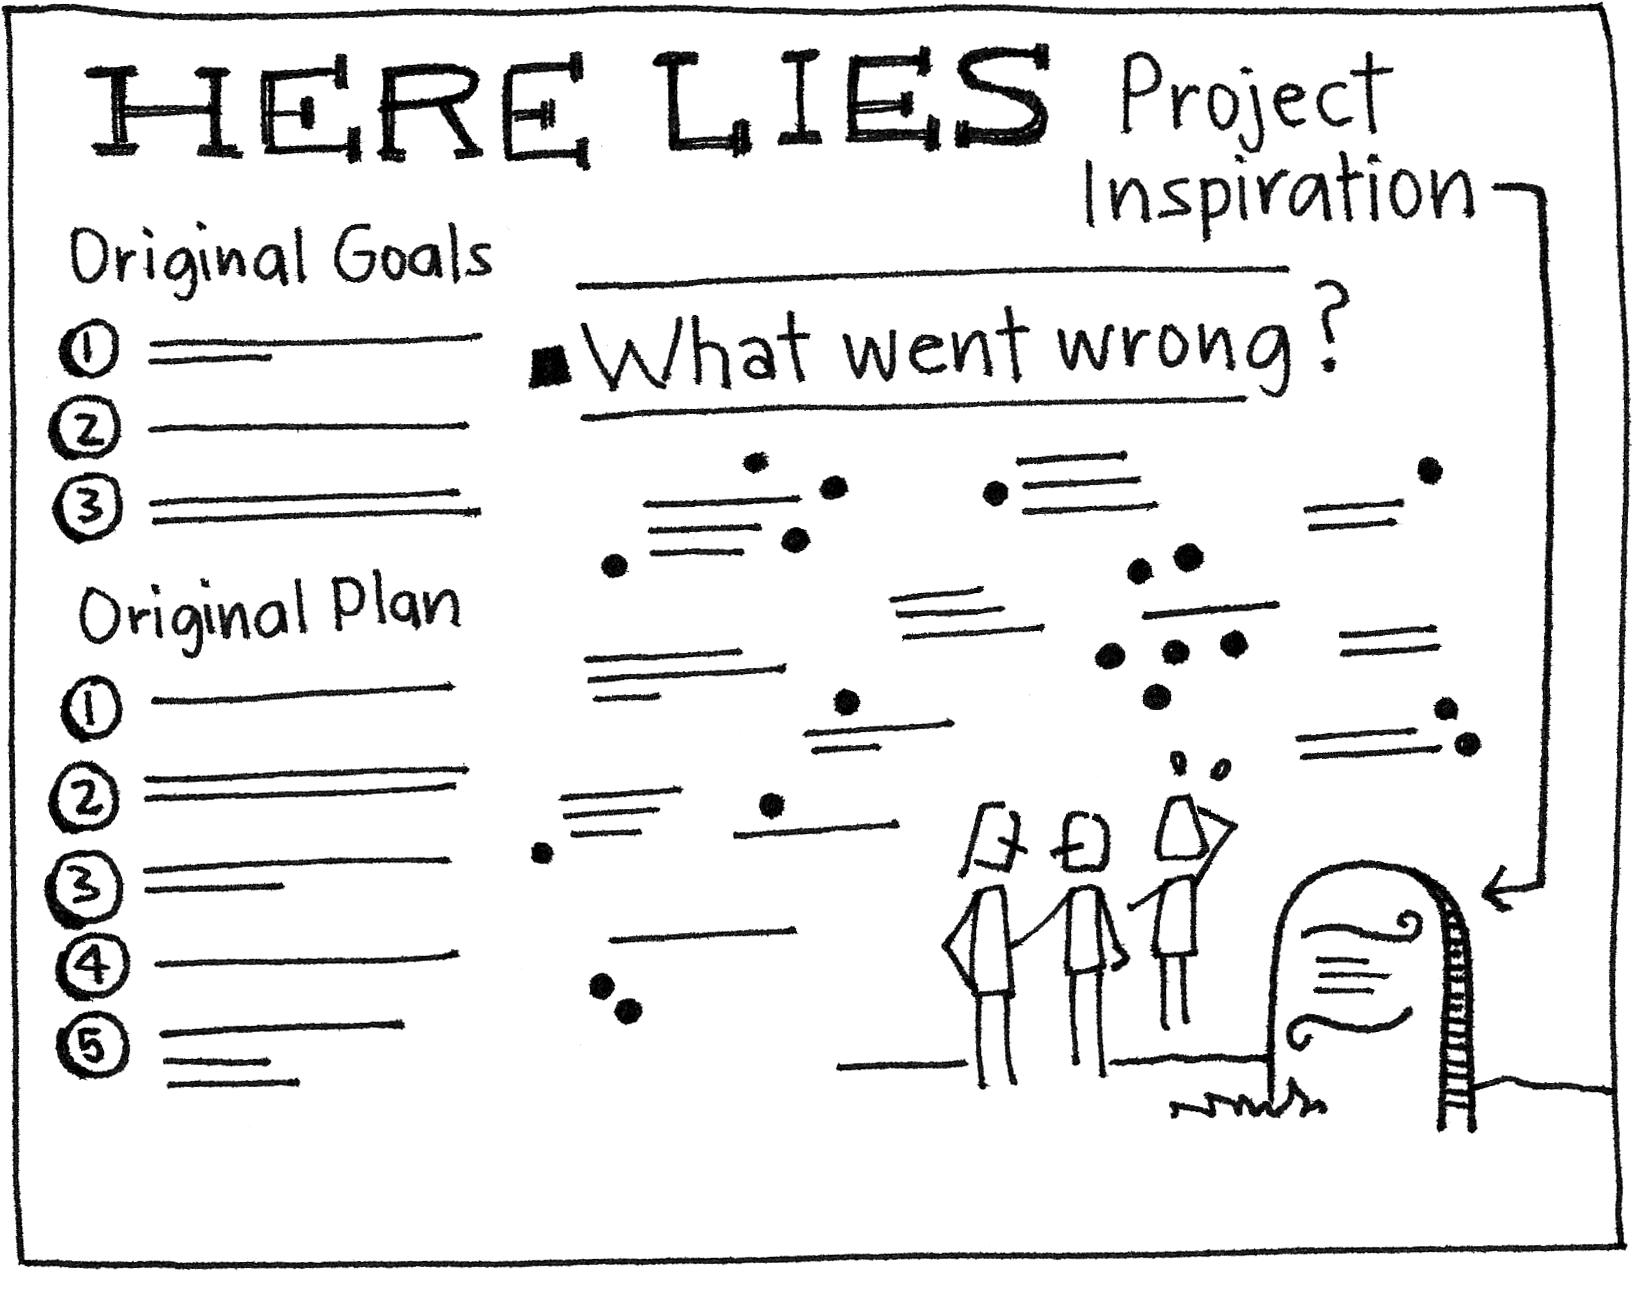 HERE LIES Project
Inspiration
Original Goals
1
2
3
Original Plan
1
2
3
4
5
What went wrong?